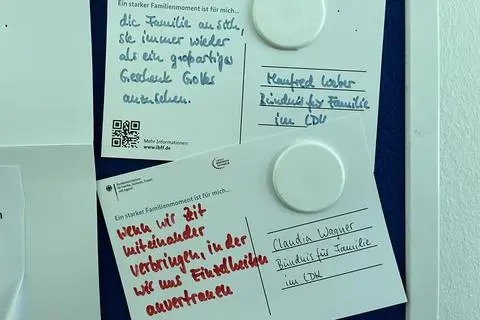 Ein starker Familienmoment ist für mich...
die Familie an sich,
sie immer wieder
als ein großartiges
Geschenk Gottes
anzusehen.
Manfred Weber
Bündnis für Familie
im LDK
Mehr Informationen:
www.lbff.de
Ein starker Familienmoment ist für mich...
wenn wir Zeit
miteinander
verbringen, in der
wir uns Einzelheiten
anvertrauen
Claudia Wagner
Bündnis für Familie
im LDK